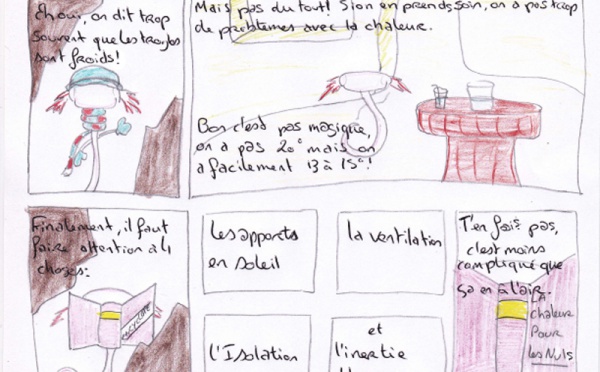 on dit trop
souvent que les
sont froids!
Mais pas du tout! Si on en prend soin, on a pas trop
de problèmes avec la chaleur.
Bon c'est pas magique,
on a pas 20° mais on
a facilement 13 à 15°!
Finalement, il faut
faire attention à 4
choses:
recyclage
Les apports
en soleil
la ventilation
l'Isolation
et
l'inertie
T'en fais pas,
c'est moins
compliqué que
ça en à l'air.
LA
chaleur
Pour
les Nuls